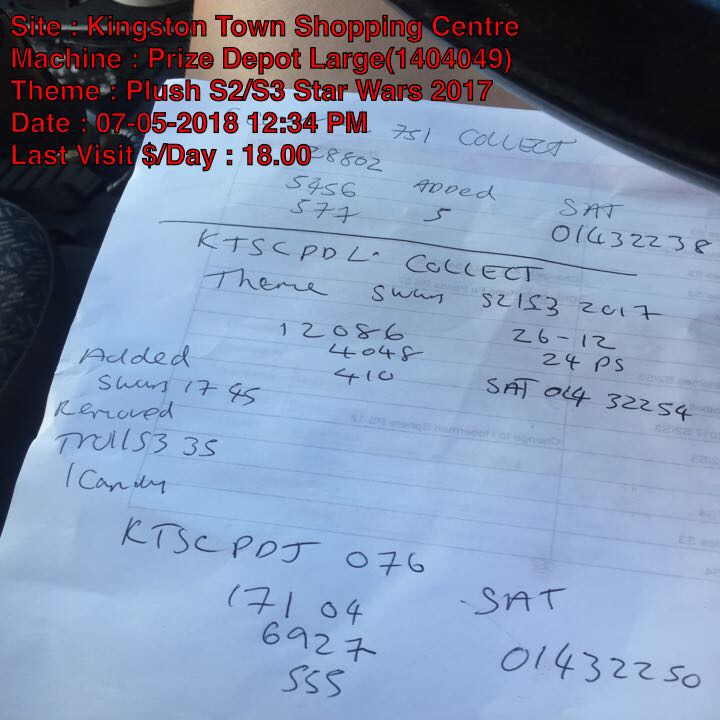 Site : Kingston Town Shopping Centre
Machine : Prize Depot Large(1404049)
Theme : Plush S2/S3 Star Wars 2017
Date : 07-05-2018 12:34 PM
Last Visit $/Day : 18.00
751 COLLECT
28802
5456 ADDed SAT
577 5 01432238
KTSCPDL. COLLECT
Theme swars S2/S3 2017
12086 26-12
4048 24 PS
410 SAT 014 32254
Added
swars 17 45
Removed
TrollS3 35
1 Candy
KTSCPDJ 076
171 04 SAT
6927
01432250
555